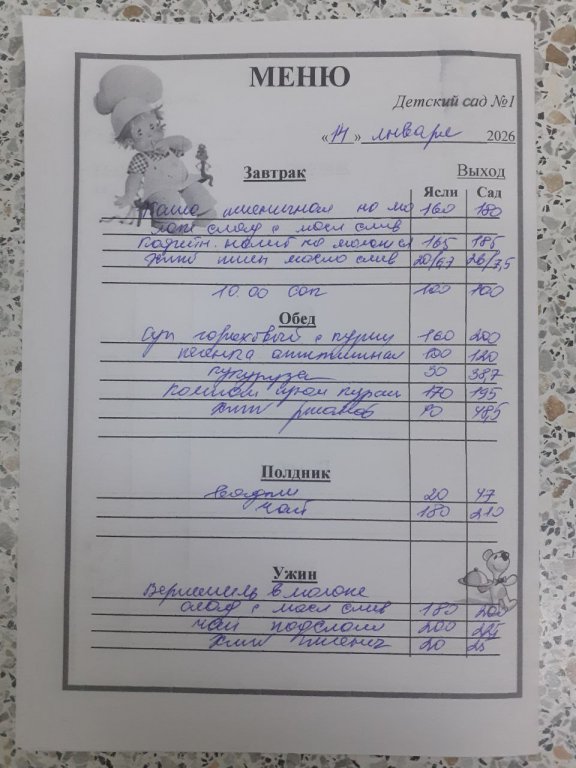 МЕНЮ
Детский сад №1
«14» января 2026
Завтрак Выход
Ясли Сад
Каша пшеничная на мо 160 180
локе слад с масл слив
Кофейн. напит на молоке сл 165 185
Хлеб пшен масло слив 20/6,7 26/7,5
10.00 сок 100 100
Обед
Суп гороховый с курицы 160 200
печенка аппетитная 100 120
кукуруза 30 38,7
Компот изюм кураги 170 195
Хлеб ржаной 40 48,5
Полдник
Вафли 20 47
Чай 180 210
Ужин
Вермишель в молоке
слад с масл слив 180 200
Чай подслащ 200 225
Хлеб пшенич 20 25